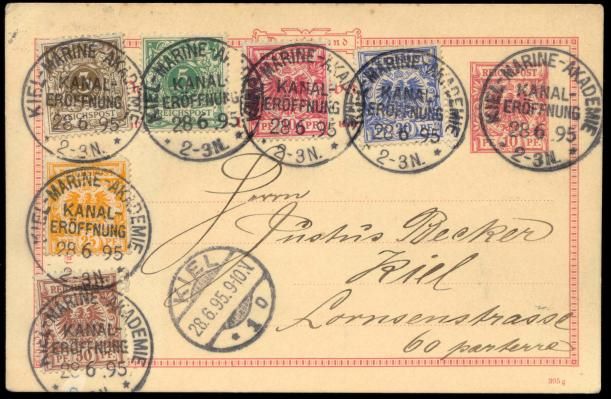 KIEL-MARINE-AKADEMIE
KANAL-
ERÖFFNUNG
28 6. 95
* 2-3N. *
KIEL-MARINE-AKADEMIE
KANAL-
ERÖFFNUNG
28 6. 95
* 2-3N. *
KIEL-MARINE-AKADEMIE
KANAL-
ERÖFFNUNG
28 6. 95
* 2-3N. *
KIEL-MARINE-AKADEMIE
KANAL-
ERÖFFNUNG
28 6. 95
* 2-3N. *
REICHSPOST
KIEL-MARINE-AKADEMIE
KANAL-
ERÖFFNUNG
28 6. 95
10 PF
* 2-3N. *
KIEL-MARINE-AKADEMIE
KANAL-
ERÖFFNUNG
28 6. 95
* 2-3N. *
KIEL-MARINE-AKADEMIE
KANAL-
ERÖFFNUNG
28 6. 95
* 2-3N. *
KIEL
28.6.95.9-10V.
* 1 o
Herrn
Justus Becker
Kiel
Lornsenstrasse
60 parterre
395g